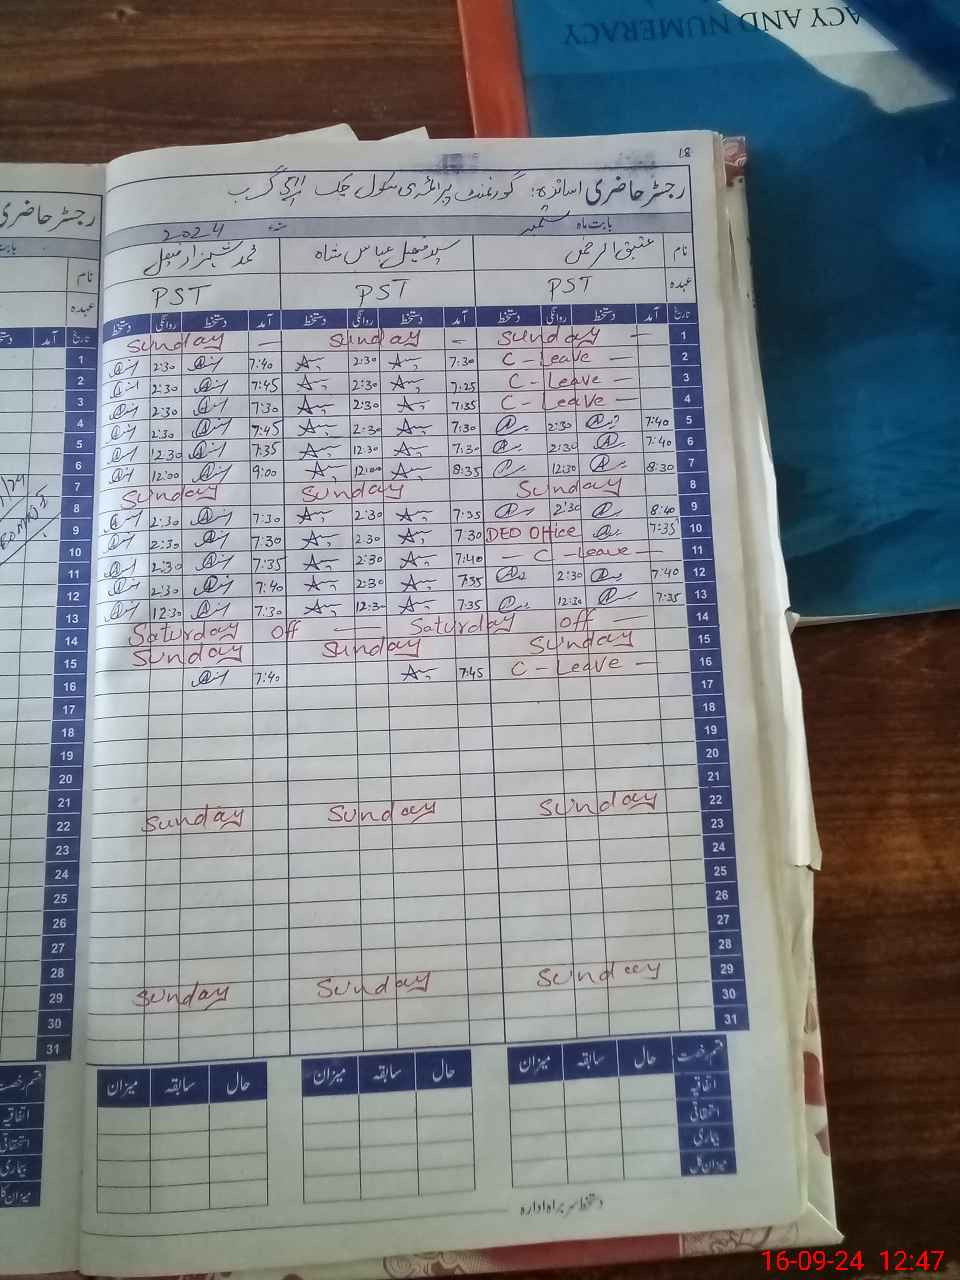 ACY AND NUMERACY
18
رجسٹر حاضری اساتذہ: گورنمنٹ پرائمری سکول چک
بابت ماہ ستمبر ء 2024
نام عتیق الرحمٰن سید فیصل عباس شاہ محمد شہزاد فیصل
عہدہ PST PST PST
تاریخ آمد دستخط روانگی دستخط آمد دستخط روانگی دستخط آمد دستخط روانگی دستخط
1 Sunday — Sunday — Sunday —
2 C - Leave — 7:30 2:30 7:40 2:30
3 C - Leave — 7:25 2:30 7:45 2:30
4 C - Leave — 7:35 2:30 7:30 2:30
5 7:40 2:30 7:30 2:30 7:45 2:30
6 7:40 2:30 7:30 12:30 7:35 12:30
7 8:30 12:30 8:35 12:00 9:00 12:00
8 Sunday Sunday Sunday
9 8:40 2:30 7:35 2:30 7:30 2:30
10 7:35 DEO Office 7:30 2:30 7:30 2:30
11 — C - Leave — 7:40 2:30 7:35 2:30
12 7:40 2:30 7:35 2:30 7:40 2:30
13 7:35 12:30 7:35 12:30 7:30 12:30
14 Saturday off — Saturday off —
15 Sunday Sunday Sunday
16 C - Leave — 7:45 7:40
17
18
19
20
21
22 Sunday Sunday Sunday
23
24
25
26
27
28
29 Sunday Sunday Sunday
30
31
قسم رخصت حال سابقہ میزان حال سابقہ میزان حال سابقہ میزان
اتفاقیہ
استحقاقی
بیماری
میزان کل
دستخط سربراہ ادارہ
رجسٹر حاضری
بابت
نام
عہدہ
تاریخ آمد
1
2
3
4
5
6
7
8
9
10
11
12
13
14
15
16
17
18
19
20
21
22
23
24
25
26
27
28
29
30
31
قسم رخصت
اتفاقیہ
استحقاقی
بیماری
میزان کل
16-09-24 12:47